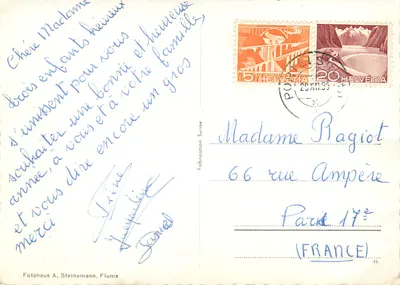 Chère Madame
trois enfants heureux
s'unissent pour vous
souhaiter une bonne et heureuse
année, à vous et à votre famille,
et vous dire encore un gros
merci
Jacqueline
Daniel
Fotohaus A. Steinemann, Flums
5 HELVETIA
20 HELVETIA
Madame Ragiot
66 rue Ampère
Paris 17e
(FRANCE)